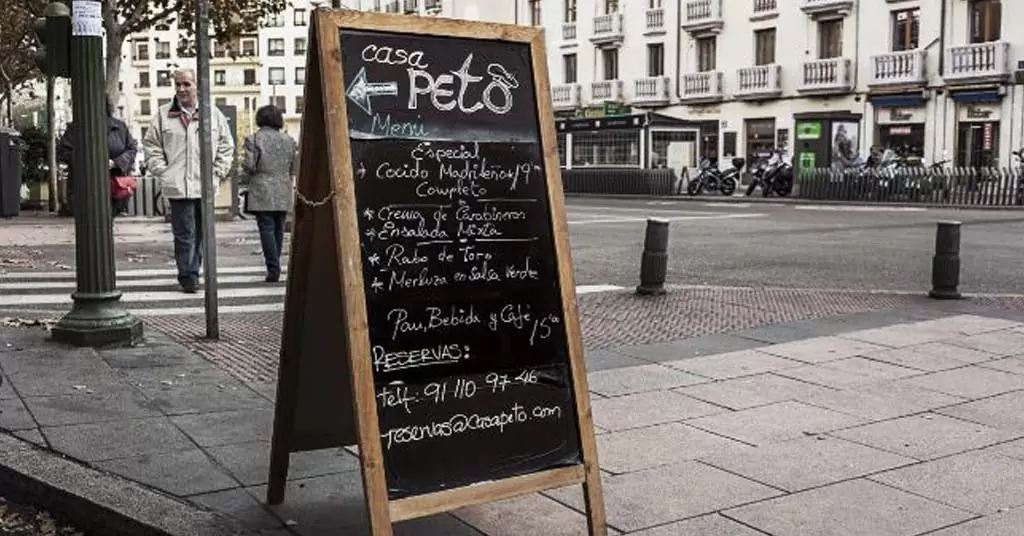 casa
Peto
Menú
Especial
* Cocido Madrileño 19
Completo
* Crema de Carabineros
* Ensalada Mixta
* Rabo de Toro
* Merluza en Salsa Verde
Pan, Bebida y Café /15
RESERVAS:
telf: 91 110 97 46
reservas@casapeto.com